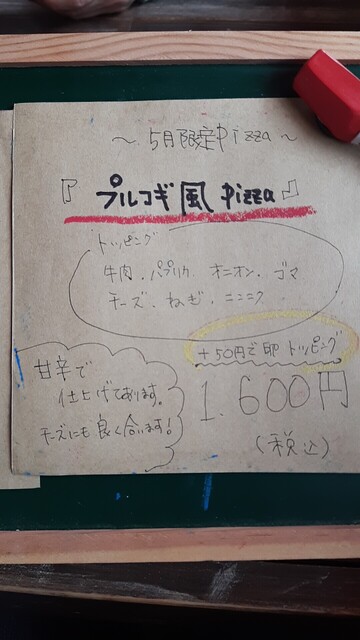 ～ 5月限定pizza ～
『 プルコギ風 pizza 』
トッピング
牛肉、パプリカ、オニオン、ゴマ
チーズ、ねぎ、ニンニク
+50円で卵トッピング
甘辛で
仕上げております。
チーズにも良く合います!
1.600円
(税込)